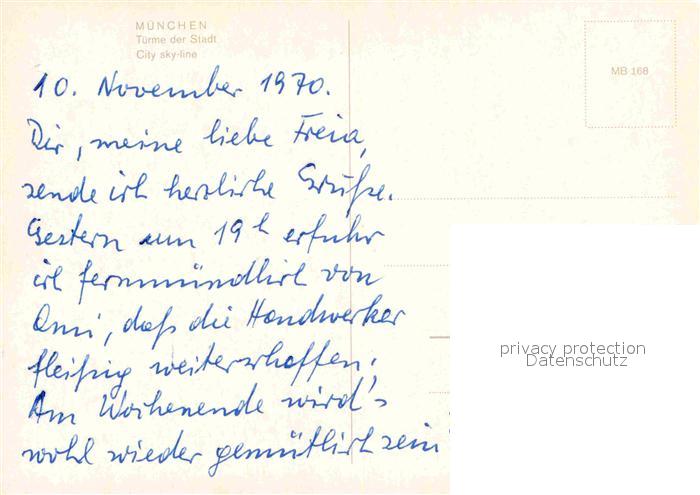 MÜNCHEN
Türme der Stadt
City sky-line
MB 168
10. November 1970.
Dir, meine liebe Freia,
sende ich herzliche Grüße.
Gestern um 19 h erfuhr
ich fernmündlich von
Omi, daß die Handwerker
fleißig weiterschaffen.
Am Wochenende wird's
wohl wieder gemütlich sein
privacy protection
Datenschutz